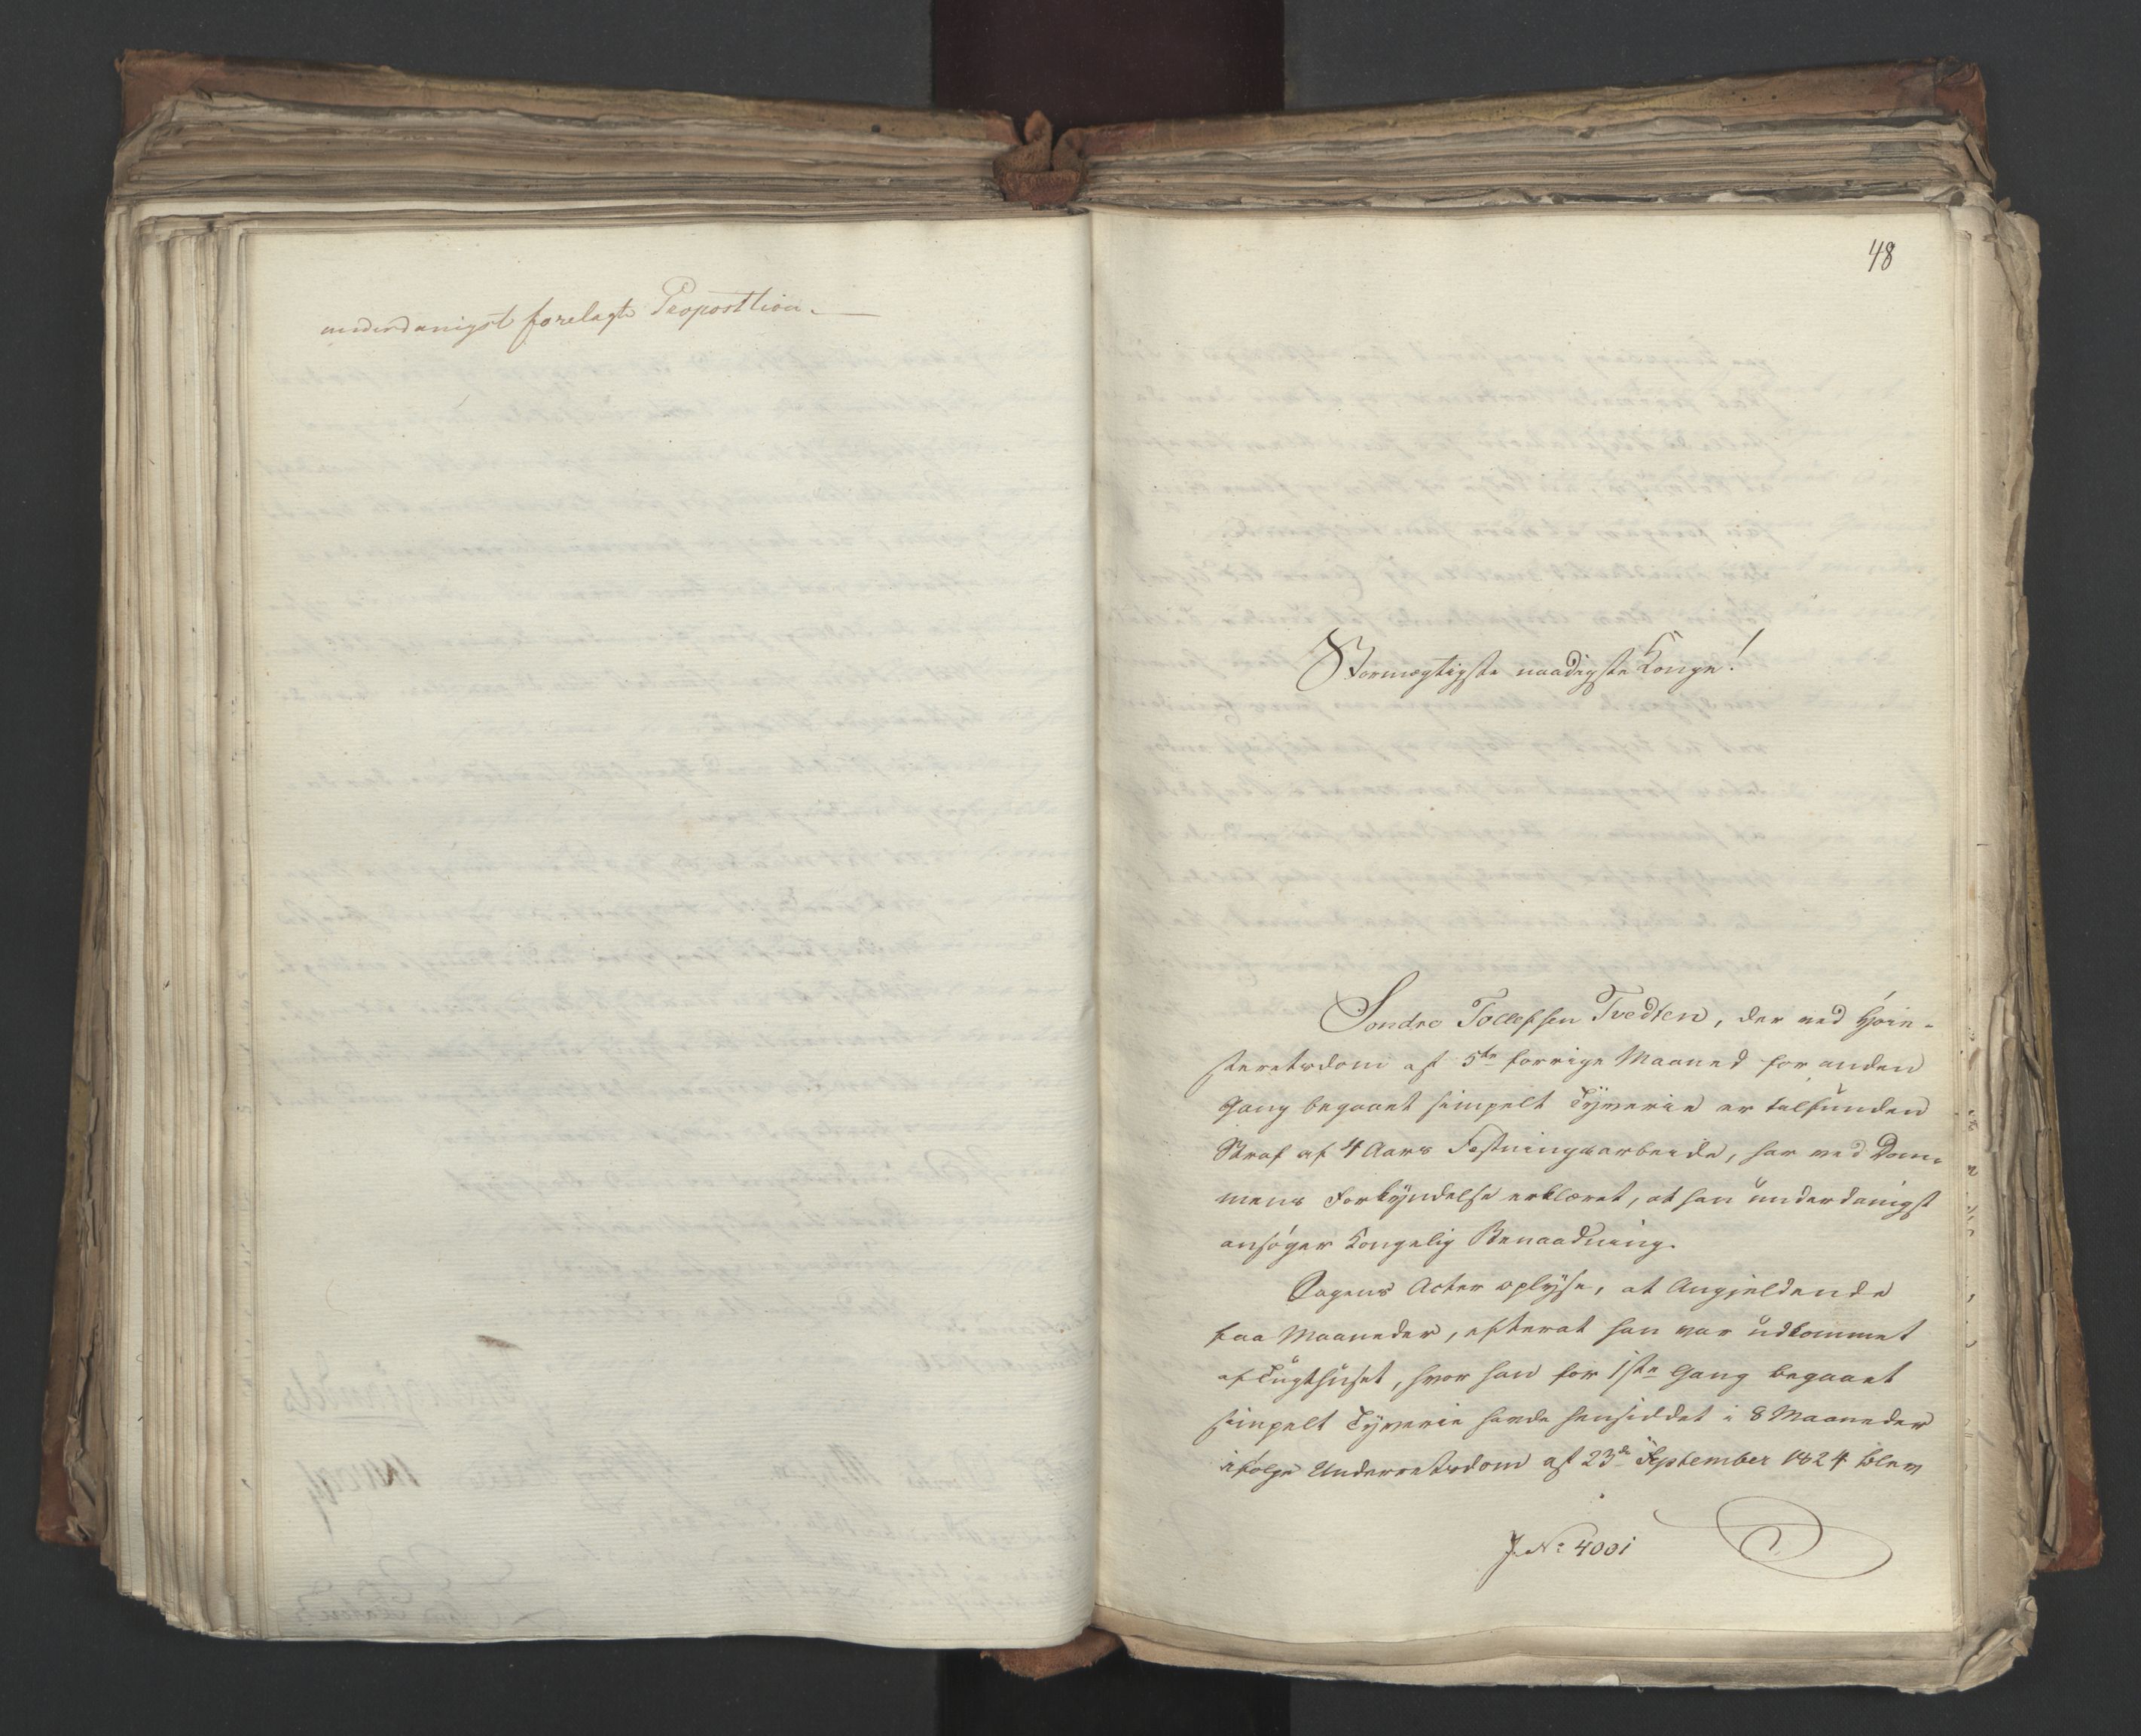 underdanigst forelagte Proposition.
48
Stormægtigste naadigste Konge!
Sondre Tollefsen Tvedten, der ved Høie-
steretsdom af 5te forrige Maaned for anden
Gang begaaet simpelt Tyverie er tilfunden
Straf af 4 Aars Fæstningsarbeide, har ved Dom-
mens Forkyndelse erklæret, at han underdanigst
ansøger Kongelig Benaadning.
Sagens Acter oplyse, at Angjeldende
faa Maaneder, efterat han var udkommet
af Tugthuset, hvor han for 1ste Gang begaaet
simpelt Tyverie havde hensiddet i 8 Maaneder
ifølge Underretsdom af 23de September 1824 blev
J. No 4001